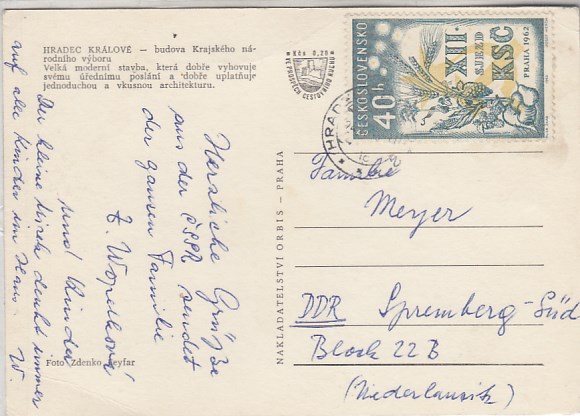 HRADEC KRÁLOVÉ – budova Krajského ná-
rodního výboru
Velká moderní stavba, která dobře vyhovuje
svému úřednímu poslání a dobře uplatňuje
jednoduchou a vkusnou architekturu.
Kčs 0,20
VE PROSPĚCH CESTOVNÍHO RUCHU
ČESKOSLOVENSKO
40 h
XII.
SJEZD
KSČ
PRAHA 1962
HRADEC
Herzliche Grüße
aus der ČSSR sendet
der ganzen Familie
und Kinder
Der kleine Mirek denkt immer
auf alle Kinder im Haus. W.
Foto Zdenko Feyfar
NAKLADATELSTVÍ ORBIS – PRAHA
Familie
Meyer
DDR Spremberg-Süd
Block 22 B
(Niederlausitz)